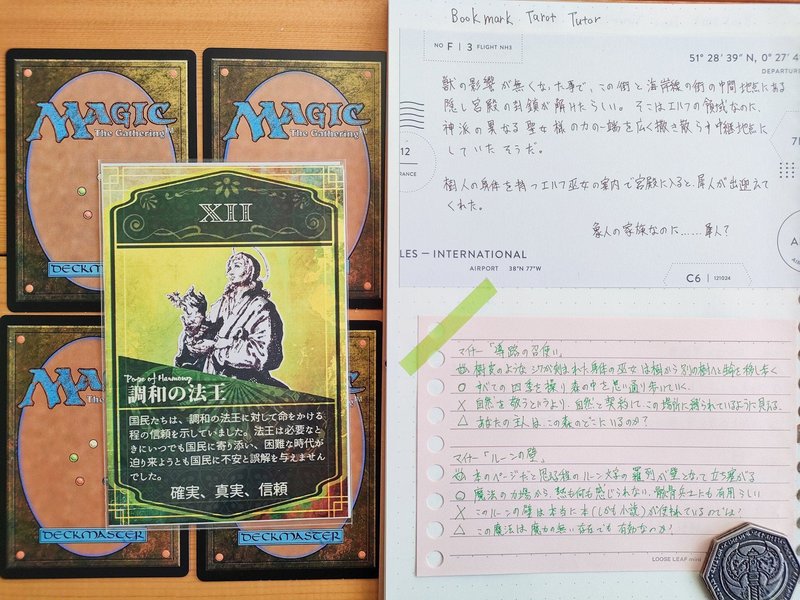 MAGIC
The Gathering
DECKMASTER
MAGIC
The Gathering
MAGIC
DECKMASTER
MAGIC
DECKMASTER
XII
Pope of Harmony
調和の法王
国民たちは、調和の法王に対して命をかける
程の信頼を示していました。法王は必要なと
きにいつでも国民に寄り添い、困難な時代が
迫り来ようとも国民に不安と誤解を与えません
でした。
確実、真実、信頼
Bookmark Tarot Tutor
NO F | 3 FLIGHT NH3
51° 28′ 39″ N, 0° 27′ 4
DEPARTURE
獣の影響が無くなった事で、この街と海岸線の街の中間地点にある
隠し宮殿の封鎖が解けたらしい。そこはエルフの領域なのに、
神派の異なる聖女様の力の一端を広く撒き散らす中継地点に
していたそうだ。
12
RANCE
樹人の身体を持つエルフ巫女の案内で宮殿に入ると、犀人が出迎えて
くれた。
象人の家族なのに……犀人?
LES – INTERNATIONAL
AIRPORT 38°N 77°W
C6 | 121024
マイナー「導路の召使い」
樹皮のようなシワが刻まれた身体の巫女は樹から別の樹へと軸を移し歩く
○ すべての四季を操り森の中を思い通り歩いていく。
× 自然を敬うというより、自然と契約して、この場所に縛られているように見える。
△ あなたの主人はこの森のどこにいるのか?
マイナー「ルーンの壁」
本のページだと思える程のルーン文字の羅列が壁となって立ち塞がる
○ 魔法の力場から、熱も何も感じられない。骸骨兵士にも有用らしい
× このルーンの壁は本当に本(しかも小説)が使われているのでは?
△ この魔法は魔力の無い存在でも有効なのか?
LOOSE LEAF mini